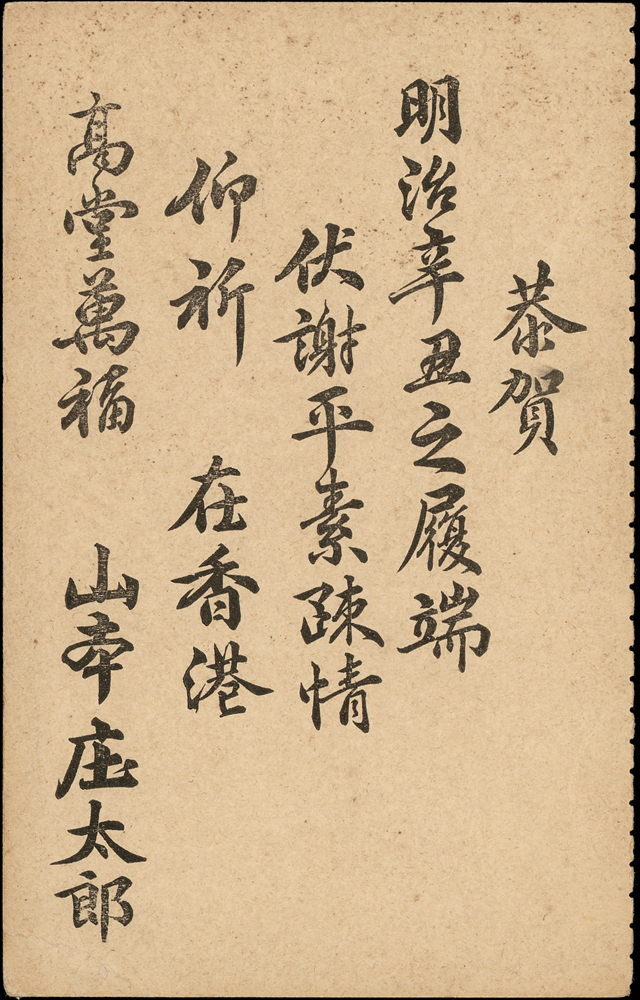 恭賀
明治辛丑之履端
伏謝平素疎情
仰祈
高堂萬福
在香港
山本庄太郎